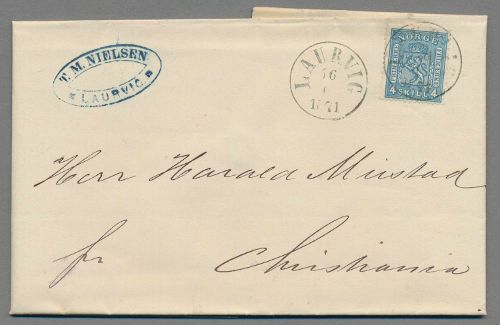 T. M. NIELSEN
LAURVIG
LAURVIG
16
1871
NORGE
4 SKILL 4
Herr Harald Mustad
fr
Christiania